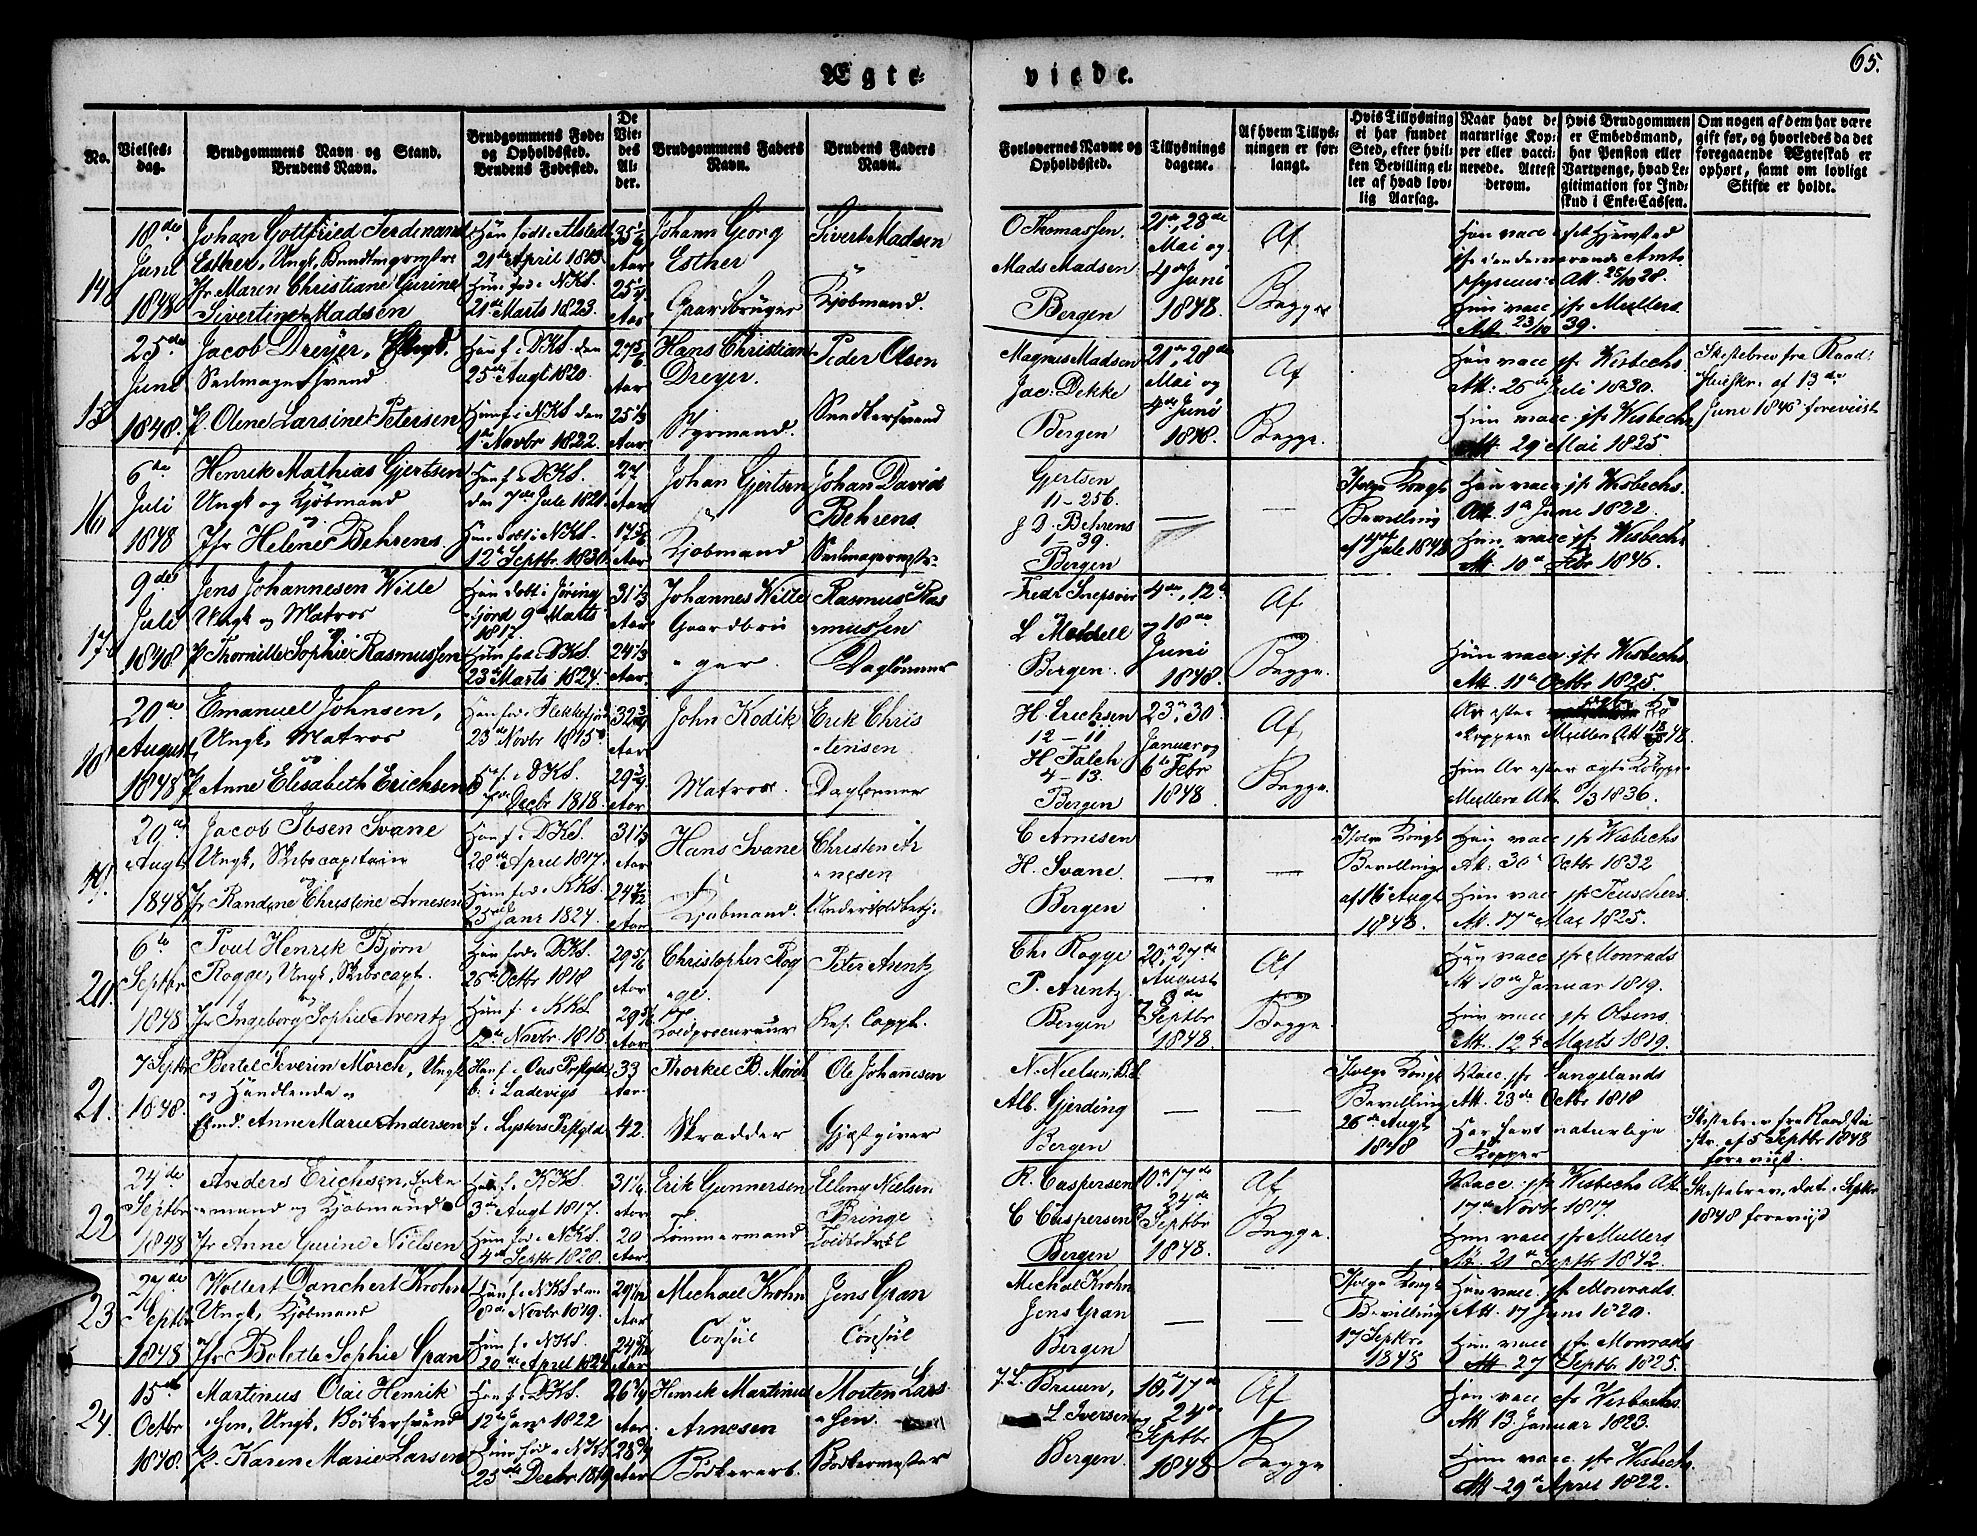 65.
Ægte-
viede.
No.
Vielses-
dag.
Brudgommens Navn og Stand.
Brudens Navn.
Brudgommens Føde-
og Opholdssted.
Brudens Fødested.
De
Vie-
des
Al-
der.
Brudgommens Faders
Navn.
Brudens Faders
Navn.
Forlovernes Navne og
Opholdssted.
Tillysnings
dagene.
Af hvem Tillys-
ningen er for-
langt.
Hvis Tillysning
ei har fundet
Sted, efter hvil-
ken Bevilling el-
ler af hvad lov-
lig Aarsag.
Naar havt de
naturlige Kop-
per eller vacci-
nerede. Attest
derom.
Hvis Brudgommen
er Embedsmand,
har Pension eller
Vartpenge, hvad Le-
gitimation for Ind-
skud i Enke-Cassen.
Om nogen af dem har være
gift før, og hvorledes da det
foregaaende Ægteskab er
ophørt, samt om lovligt
Skifte er holdt.
14
18de
Juni
1848
Johan Gottfried Ferdinand
Esther, Ungk,
Jfr Maren Christiane Gurine
Sivertine Madsen
21de April 1813
Hun fød i NKS.
21de Marts 1823.
Aar
25 1/4
Aar
Johann Georg
Esther
Gaardbruger
Sivert Madsen
Kjøbmand.
O Thomassen.
Mads Madsen
Bergen
21de, 28de
Mai og
4de Juni
1848.
Af
Begge
Att. 25/10 28.
Hun vacc jfr Mullers
Att. 23/10 39.
15
25de
Juni
1848.
Jacob Dreyer, Ungk.
Seilmagersvend
P. Olene Larsine Petersen
Han f. i DKS. den
25de Augt 1820.
Hun f. i NKS den
1te Novbr 1822.
27 5/6
Aar
25 1/3
Aar
Hans Christian
Dreyer.
Styrmand.
Peder Olsen
Snedkersvend
Magnus Madsen
Jac: Dekke
Bergen
21de, 28de
Mai og
4de Juni
1848.
Af
Begge.
Han vacc jfr Wisbechs
Att: 26de Juli 1830.
Hun vacc jfr Wisbechs
Att. 29 Mai 1825.
Skiftebrev fra Raad-
stueskr. af 13de
Juni 1848 foreviist
16
6te
Juli
1848
Henrik Mathias Gjertsen
Ungk og Kjøbmand
Jfr Helene Behrens.
Han f. i DKS.
den 7de Jule 1821
Hun født i NKS.
12te Septbr. 1830
27
Aar
17 5/6
Aar
Johan Gjertsen
Kjøbmand
Johan David
Behrens.
Seilmagermester
Gjertsen
11-256.
J D. Behrens
1-39.
Bergen
Ifølge Kongl
Bevilling
af 4de Jule 1848
Han vacc jfr Wisbechs
Att. 1te Juni 1822.
Hun vacc jfr Wisbechs
Att. 10de Febr 1846.
17
9de
Juli
1848
Jens Johannesen Wille
Ungk og Matros
P. Thomille Sophie Rasmussen
Han født i Jøring
fjord 9de Marts
1817.
Hun fød i DKS.
23de Marts 1824.
31 1/3
Aar
24 1/3
Aar.
Johannes Wille
Gaardbru
ger.
Rasmus Ras
mussen
Daglønner
L Meldell
Bergen
4de, 12te
og 18de
Juni
1848.
Af
Begge.
Hun vacc jfr Wisbechs
Att. 11te Octbr 1825.
18
20de
August
1848
Emanuel Johnsen,
Ungk, Matros
P. Anne Elisabeth Erichsen
Han fød i Flekkefjord
23de Novbr 1815
f. i DKS.
Decbr 1818.
32 3/4
Aar
29 3/4
Aar
John Kodik
Matros.
Erik Chris
tensen
Daglønner
H. Erichsen
12-11
H. Falch
4-13.
Bergen
23de, 30
Januar og
6te Febr
1848
Af
Begge.
Mullers Att
Hun Ar efter ægte Kopper
Mullers Att. 6/3 1836.
19.
29de
Augt
1848
Jacob Ibsen Svane
Ungk, Skibscapitain
Jfr Randine Christine Arnesen
Han f. i DKS.
28de April 1817.
Hun fød i KKS.
25de Janr 1824.
31 1/3
Aar
24 7/12
Aar
Hans Svane
Kjøbmand.
Christen Ar
nesen
Underfoldbetj.
C Arnesen
H. Svane.
Bergen
Ifølge Kongl
Bevilling
af 16 Augt
1848.
Han vacc jfr Wisbechs
At. 30te Octbr 1832
Hun vacc jfr Teuschers
At. 17de Mai 1825.
20.
6te
Septbr
1848
Poul Henrik Bjørn
Rogge, Ungk, Skibscapt.
Jfr Ingeborg Sophie Arentz
Han fød i DKS.
26de Octbr 1818
Hun f. i KKS
Novbr 1818.
29 5/6
Aar
29 5/6
Aar
Christopher Rog
ge.
Peter Arentz
Res. Cappl.
Chr Rogge
P. Arentz.
Bergen
20, 27de
August
og 3de
Septbr
1848.
Af
Begge.
Han vacc jfr Monrads
At 10de Januar 1819.
Hun vacc jfr Olsens
Att. 12te Marts 1819.
21.
7 Septbr
1848.
Bertel Severin Mørch, Ungk
og Handlende
Anne Marie Andersen
Han f. i Ous Prstgld
b. i Ladevigs
f. i Lysters Prstgld
33
Aar.
42.
Thorkel B. Mørch
Skrædder
Ole Johannesen
Gjæstgiver
Alb. Gjerding
Bergen
Ifølge Kongl
Bevilling
26de Augt
1848
Vacc jfr Langelands
Att. 23de Octbr 1818
Har havt naturlige
Kopper
Skiftebrev fra Raadstu
skr. af 5 Septbr 1848
foreviist.
22
24de
Septbr
1848
Anders Erichsen, Enke
mand og Kjøbmand
Jfr Anne Gurine Nielsen
Han f. i KKS.
3de Augt 1817.
Hun fød i NKS.
4de Septbr 1828.
31 1/6
Aar
20
Aar
Erik Gunnersen
Tømmermand
Elling Nielsen
Bringe
R. Caspersen
C Caspersen
Bergen
10de, 17de
24de
Septbr
1848.
Af
Begge.
Vacc. jfr Wisbechs Att
17de Novbr 1817.
Hun vacc jfr Mullers
At. 21de Septbr 1842.
Skiftebrev, dat. Septbr
1848 foreviist
23
24de
Septbr
1848
Wollert Danchert Krohn
Ungk, Kjøbmand
Jfr Bolette Sophie Gran
Han f. i NKS den
Novbr 1819.
Hun f. i NKS.
20de April 1824
Aar
24 5/12
Aar
Michael Krohn
Consul
Jens Gran
Consul
Michal Krohn
Jens Gran
Bergen
Ifølge Kongl
Bevilling
17 Septbr.
1848
Han vacc. jfr Monrads
Att. 17 Juni 1820.
Hun vacc jfr Monrads
Att 27 Septbr 1825.
24.
15de
Octbr
1848.
Martinus Olai Henrik
sen, Ungk, Bødkersvend
P. Karen Marie Larsen
Han f. i DKS.
12te Janr 1822
Hun fød i NKS.
25de Decbr 1819
26 3/4
Aar.
28 3/4
Aar
Henrik Martinus
Arnesen
Bødkerarb.
Morten Lars
sen.
Bødkermester
J.L. Bruun,
L Iversen
Bergen.
10, 17de
24de
Septbr
1848
Af
Begge
Han vacc jfr Wisbechs
Att. 13. Januar 1823.
Hun vacc. jfr Wisbechs
Att 29de April 1822.